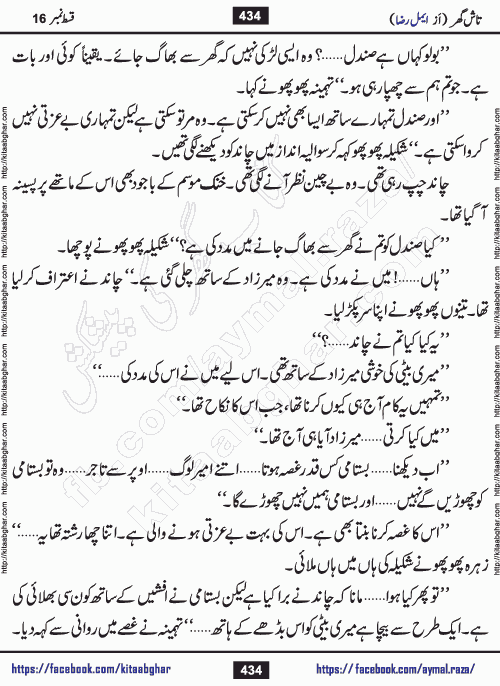 تاش گھر (از ایمل رضا)
434
قسط نمبر 16
’’بولو کہاں ہے صندل……؟ وہ ایسی لڑکی نہیں کہ گھر سے بھاگ جائے۔ یقیناً کوئی اور بات
ہے۔ جو تم ہم سے چھپا رہی ہو۔‘‘ تہمینہ پھوپھو نے کہا۔
’’اور صندل تمہارے ساتھ ایسا بھی نہیں کر سکتی ہے۔ وہ مر تو سکتی ہے لیکن تمہاری بے عزتی نہیں
کروا سکتی ہے۔‘‘ شکیلہ پھوپھو کہہ کر سوالیہ انداز میں چاند کو دیکھنے لگی تھیں۔
چاند چپ رہی تھی۔ وہ بے چین نظر آنے لگی تھی۔ خنک موسم کے باجود بھی اس کے ماتھے پر پسینہ
آ گیا تھا۔
’’کیا صندل کو تم نے گھر سے بھاگ جانے میں مدد کی ہے؟‘‘ شکیلہ پھوپھو نے پوچھا۔
’’ہاں……! میں نے مدد کی ہے۔ وہ میرزاد کے ساتھ چلی گئی ہے۔‘‘ چاند نے اعتراف کر لیا
تھا۔ تینوں پھوپھو نے اپنا سر پکڑ لیا۔
’’یہ کیا کیا تم نے چاند……؟‘‘
’’میری بیٹی کی خوشی میرزاد کے ساتھ تھی۔ اس لیے میں نے اس کی مدد کی……‘‘
’’تمہیں یہ کام آج ہی کیوں کرنا تھا، جب اس کا نکاح تھا۔‘‘
’’میں کیا کرتی…… میرزاد آیا ہی آج تھا۔‘‘
’’اب دیکھنا…… بستامی کس قدر غصہ ہوتا…… اتنے امیر لوگ…… اوپر سے تاجر…… وہ تو بستامی
کو چھوڑیں گے نہیں…… اور بستامی ہمیں نہیں چھوڑے گا۔‘‘
’’اس کا غصہ کرنا بنتا بھی ہے۔ اس کی بہت بے عزتی ہونے والی ہے۔ اتنا اچھا رشتہ تھا یہ……‘‘
زہرہ پھوپھو نے شکیلہ کی ہاں میں ہاں ملائی۔
’’تو پھر کیا ہوا…… مانا کہ چاند نے برا کیا ہے لیکن بستامی نے افشیں کے ساتھ کون سی بھلائی کی
ہے۔ ایک طرح سے بیچا ہے میری بیٹی کو اس بڈھے کے ہاتھ……‘‘ تہمینہ نے غصے میں روانی سے کہہ دیا۔
https://facebook.com/kitaabghar
434
https://facebook.com/aymal.raza/
http://kitaabghar.com http://kitaabghar.com http://kitaabghar.com http://kitaabghar.com http://kitaabghar.com
http://kitaabghar.com http://kitaabghar.com http://kitaabghar.com http://kitaabghar.com http://kitaabghar.com
fb.com/aymal.raza/
kitaabghar.com